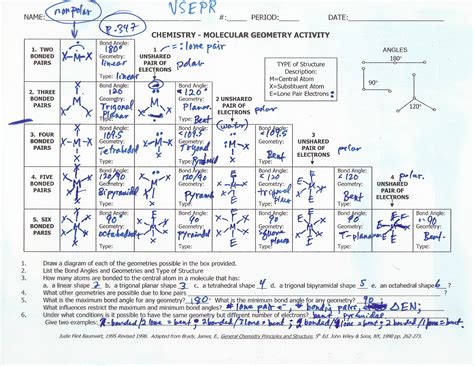 VSEPR
nonpolar
NAME: #: PERIOD: DATE:
P.347
CHEMISTRY - MOLECULAR GEOMETRY ACTIVITY
: = lone pair
1. TWO BONDED PAIRS
X-M-X
Bond Angle: 180°
Geometry: linear
Type: linear
1 UNSHARED PAIR OF ELECTRONS
polar
TYPE of Structure
Description:
M=Central Atom
X=Substituent Atom
E=Lone Pair Electrons
ANGLES
180°
90°
120°
2. THREE BONDED PAIRS
Bond Angle: 120
Geometry: Trigonal Planar
Type:
Bond Angle: <120
Geometry:
Type: Bent
2 UNSHARED PAIR OF ELECTRONS
polar
3. FOUR BONDED PAIRS
Bond Angle: 109.5
Geometry: Tetrahedral
Type:
Bond Angle: 109.5
Geometry: Trigonal
Type: Pyramid
Bond Angle: 109.5
Geometry:
Type: Bent
3 UNSHARED PAIR OF ELECTRONS
polar
4. FIVE BONDED PAIRS
Bond Angle: 120/90
Geometry: Trigonal
Bipyramidal
Type:
Bond Angle: 120/90
Geometry:
Type: Pyramid
Bond Angle: <120
Geometry: trigonal
Type:
Bond Angle: <120
Geometry:
Type: Bent
4 UNSHARED PAIR OF ELECTRONS
polar.
5. SIX BONDED PARIS
Bond Angle: 90
Geometry:
octahedral
Type:
Bond Angle: 90
Geometry:
Type: Pyramid
Bond Angle: 90
Geometry: Square
planar
Type:
Bond Angle: 90
Geometry:
T-planar
Type:
Bond Angle: 90
Geometry: Bent
Type:
1. Draw a diagram of each of the geometries possible in the box provided.
2. List the Bond Angles and Geometries and Type of Structure
3. How many atoms are bonded to the central atom in a molecule that has:
a. a linear shape 2 b. a trigonal planar shape 3 c. a tetrahedral shape 4 d. a trigonal bipyramidal shape 5 e. an octahedral shape 6 ?
4. What other geometries are possible due to lone pairs?
5. What is the maximum bond angle for any geometry? 180° What is the minimum bond angle for any geometry? 90
What influences restrict the maximum and minimum bond angles? # lone pair e-, # bonding pairs, ΔEN;
6. Under what conditions is it possible to have the same geometry but different number of electrons?
Give two examples: 2 bonded/2 lone = bent; 2 bonded/1 lone = bent;
Judie Flint Baumwirt, 1995 Revised 1998. Adapted from Brady, James, E., General Chemistry Principles and Structure, 5th Ed. John Wiley & Sons, NY, 1990 pp. 262-273.